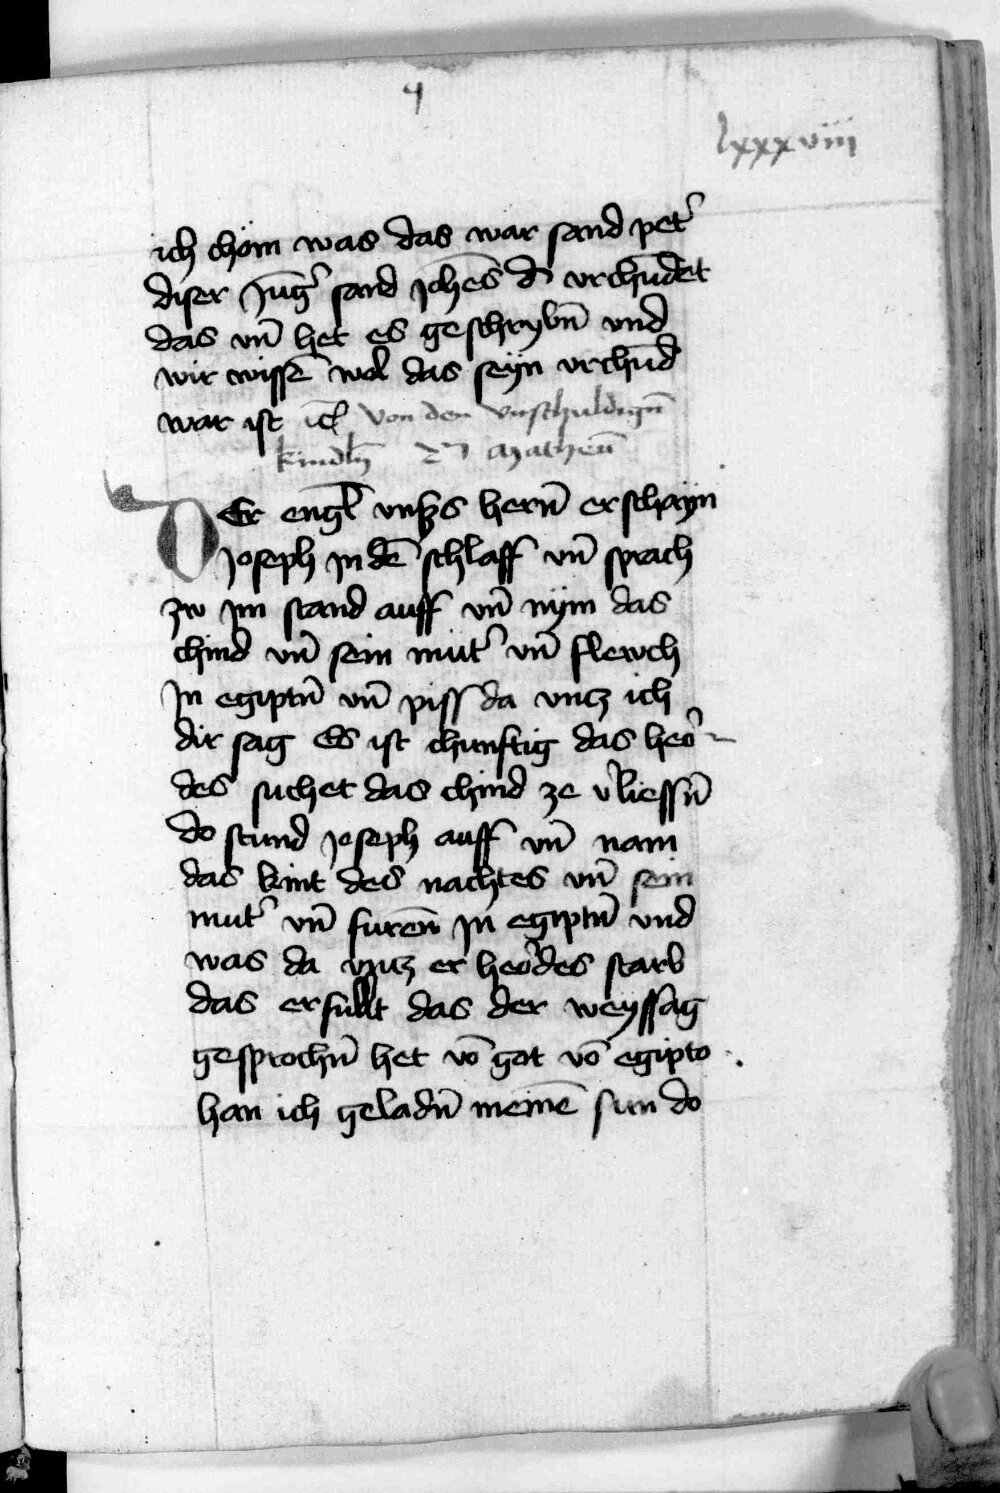 4
lxxxviii
ich chöm was das war sand pet᷑
diser Jūg᷑ sand Joh̄es d᷑ vrchūdet
das vn̄ het es geschrybn̄ vnd
wir wissē wol das seyn vrchūd
war ist ic̄ Von den Vnschuldign̄
kindln̄ Matheū
DEr engl̄ vnßs hern̄ erschayn
Joseph In dē schlaff vn̄ sprach
zw Im stand auff vn̄ nym das
chind vn̄ sein mut᷑ vn̄ flewch
In egiptn̄ vn̄ piss da vncz ich
dir sag Es ist chunftig das heo᷑
des suchet das chind ze v᷑liessn̄
do stund Joseph auff vn̄ nam
das kint des nachtes vn̄ sein
mut᷑ vn̄ furen̄ In egiptn̄ vnd
was da vncz er heo᷑des starb
das erfullt das der weyssag
gesprochn̄ het vō got vō egipto
han ich geladn̄ meinē sun do